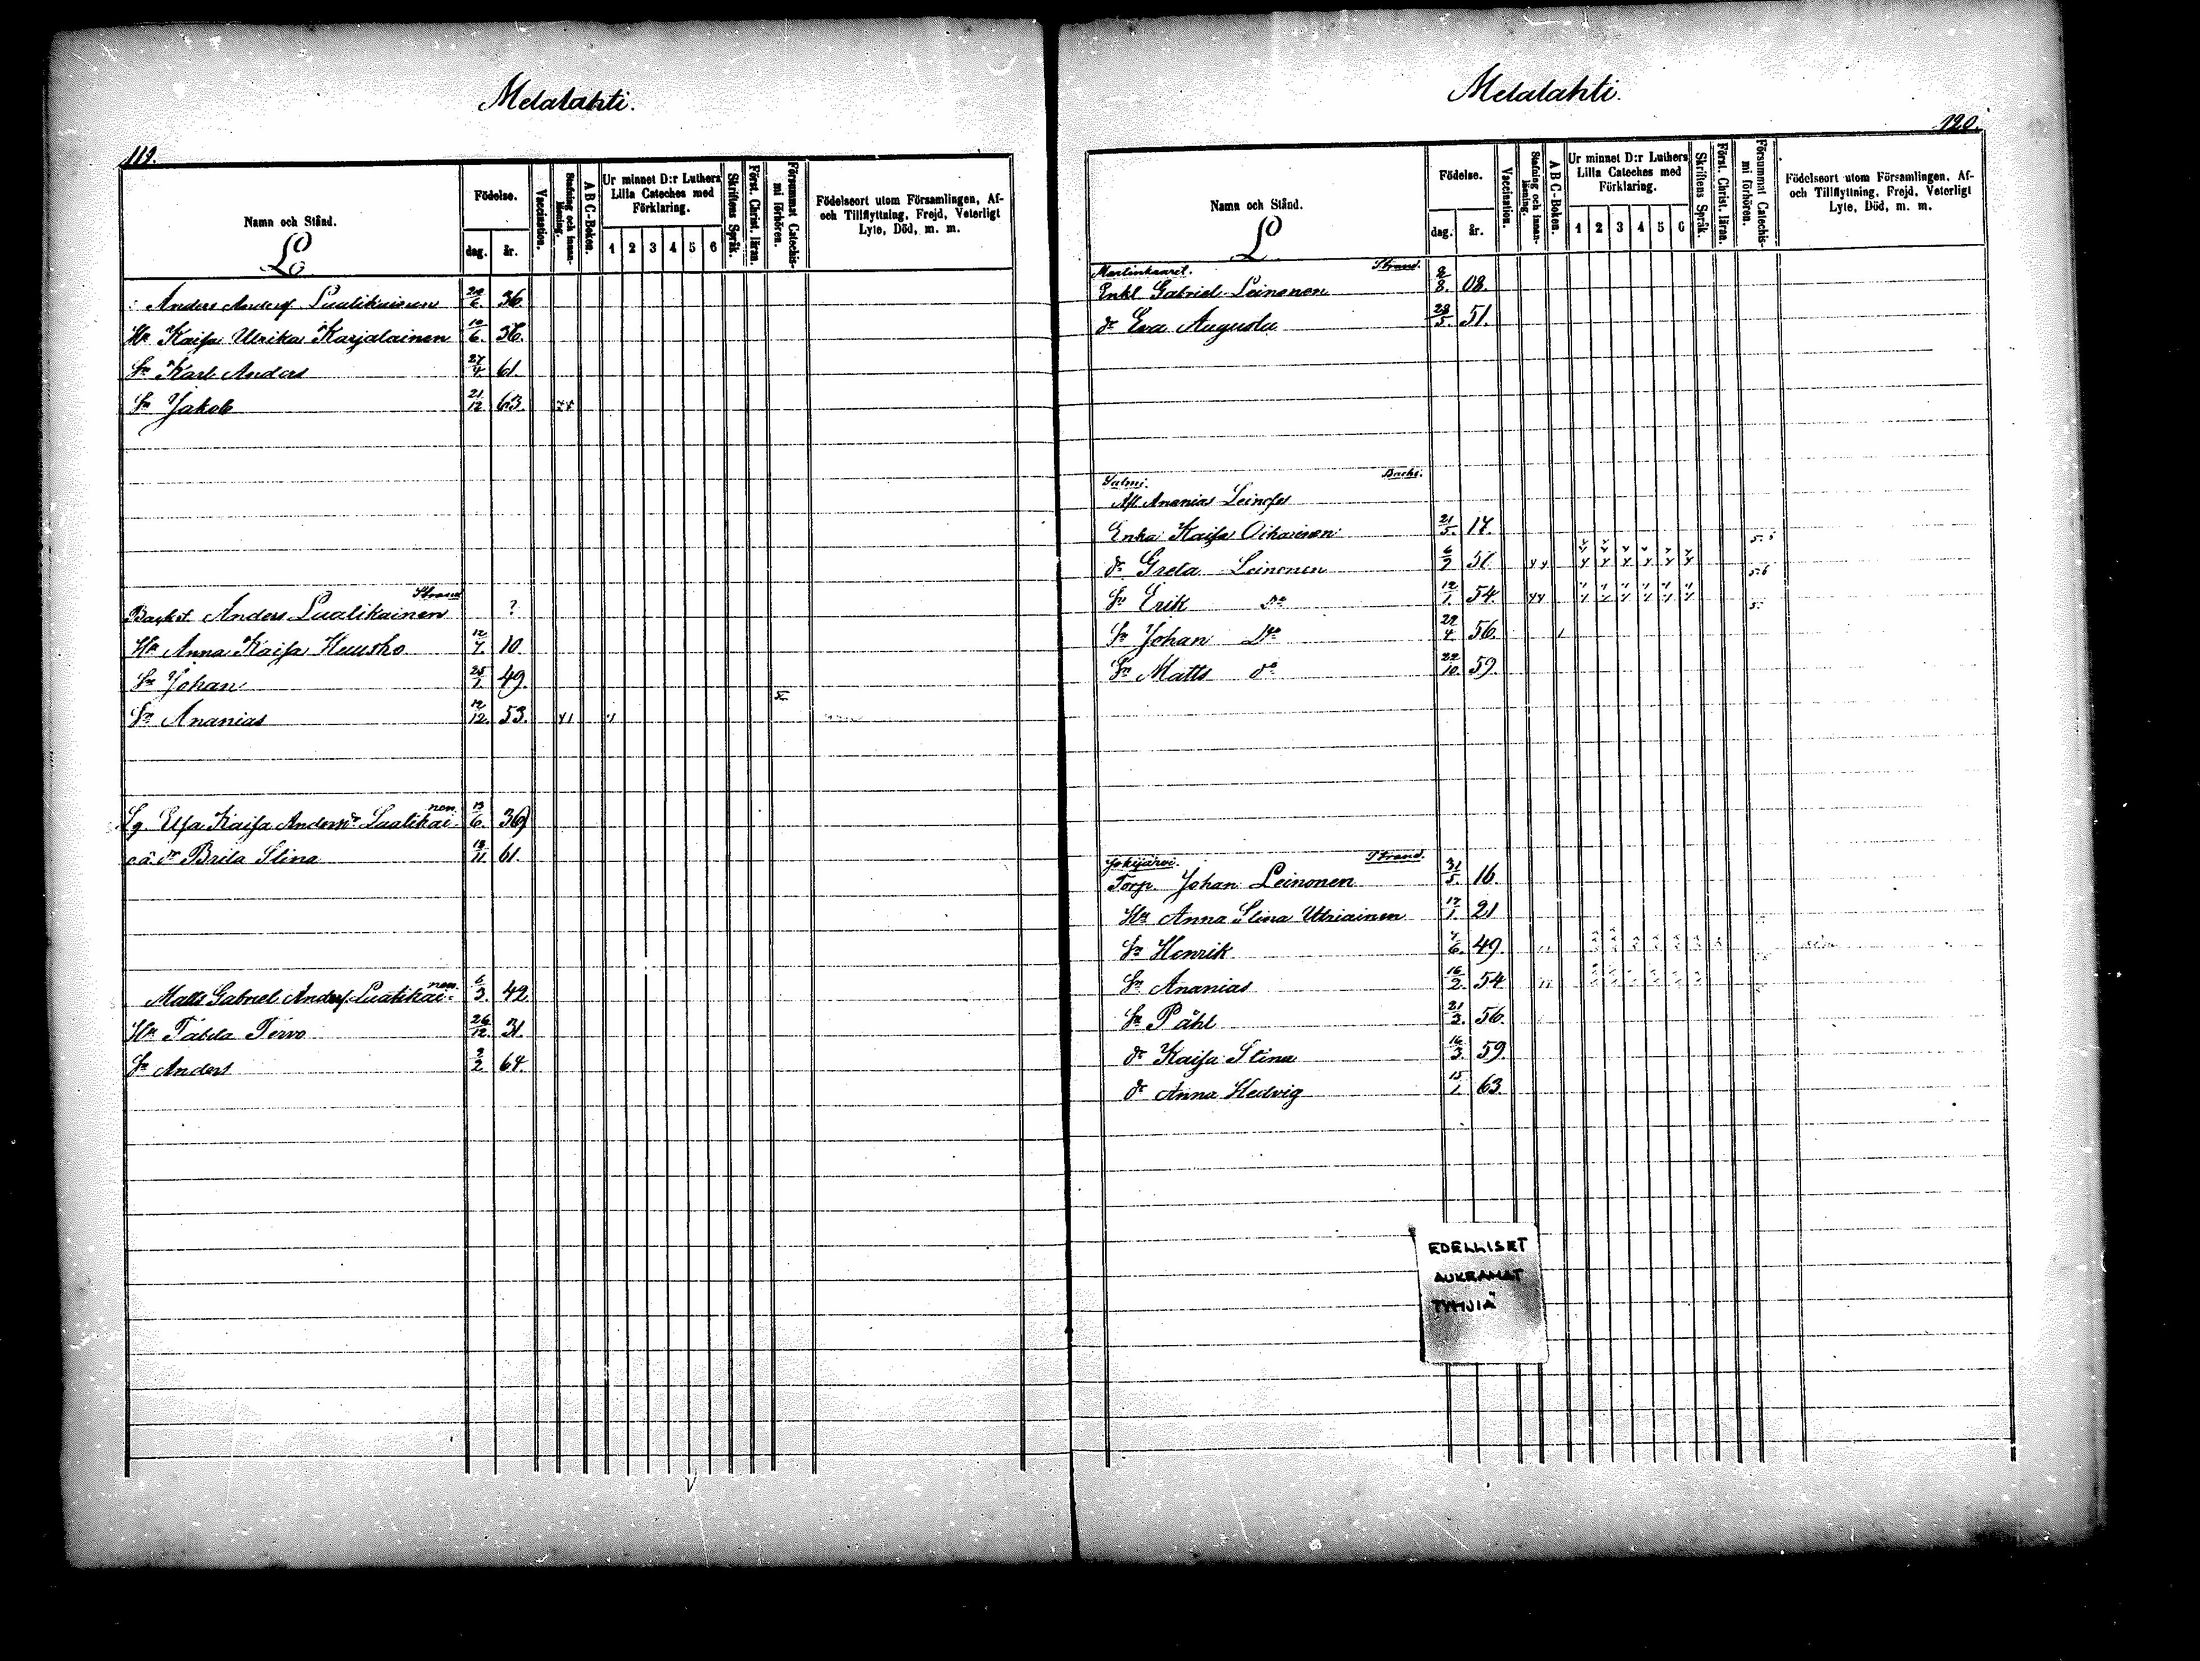 Melalahti.
119.
Namn och Stånd.
L
Födelse.
dag. år.
Vaccination.
Stafning och innanläsning.
A B C-Boken.
Ur minnet D:r Luthers Lilla Cateches med Förklaring.
1 2 3 4 5 6
Skriftens Språk.
Först. Christ. läran.
Försummat Catechismi förhören.
Födelseort utom Församlingen, Af- och Tillflyttning, Frejd, Veterligt Lyte, Död, m. m.
Anders Andersf Luatikainen 6. 36.
Hu Kaisa Ulrika Karjalainen 10/6. 36.
Sn Karl Anders 27/4 61.
Sn Jakob 21/12 63.
Strand
Anders Luatikainen ?
Hu Anna Kaisa Huusko 12/7. 10.
Sn Johan 25/1. 49.
Sn Ananias 12/12. 53.
Elsa Kaisa Andersdr Luatikainen 13/6. 36
dr Brita Stina 13/11 61.
Matts Gabriel Andersf Luatikainen 6/3. 42
Hu Tabita Tervo 26/12 31.
Sn Anders 2/2 64.
Melalahti.
120.
Namn och Stånd.
L
Födelse.
dag. år.
Vaccination.
Stafning och innanläsning.
A B C-Boken.
Ur minnet D:r Luthers Lilla Cateches med Förklaring.
1 2 3 4 5 6
Skriftens Språk.
Först. Christ. läran.
Försummat Catechismi förhören.
Födelseort utom Församlingen, Af- och Tillflyttning, Frejd, Veterligt Lyte, Död, m. m.
Strand.
Enkl Gabriel Leinonen 08.
dr Eva Augusta 28/5. 51.
Salmi. Backst.
Afl. Ananias Leinoses
Enka Kaisa Oikarinen 21/5. 17.
dr Greta Leinonen 51.
Sn Erik do 12/1. 54.
Sn Johan Do 29/4 56.
Sn Matts do 22/10. 59.
Jokijärvi. Strand.
Torp. Johan Leinonen 31/5. 16.
Hu Anna Stina Utriainen 17/1. 21
Sn Henrik 4/6. 49.
Sn Ananias 16/2. 54.
Sn Påhl 21/3. 56.
dr Kaisa Stina 16/3. 59.
dr Anna Hedvig 15/1. 63.
EDELLISET
AUKEAMAT
TYHJIÄ